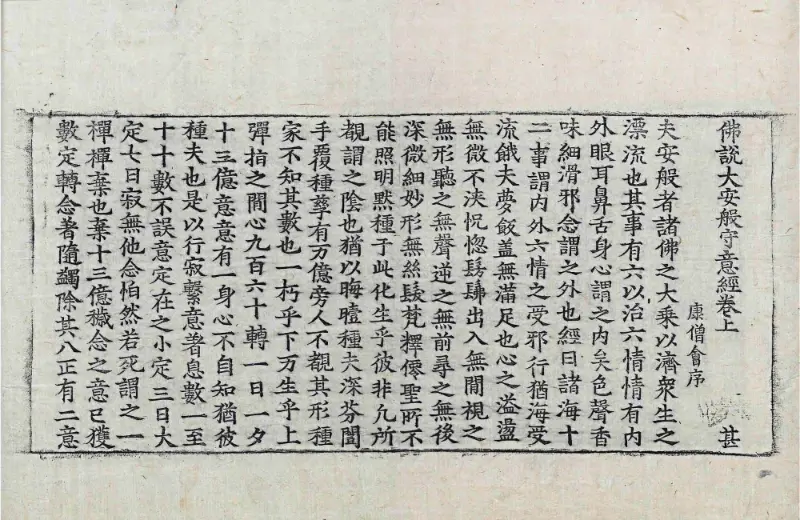 佛說大安般守意經卷上 甚
康僧會序
夫安般者諸佛之大乗以濟衆生之
漂流也其事有六以治六情情有内
外眼耳鼻舌身心謂之内矣色聲香
味細滑邪念謂之外也經曰諸海十
二事謂内外六情之受邪行猶海受
流餓夫夢飯盖無滿足也心之溢盪
無微不浹怳惚髣髴出入無間視之
無形聽之無聲逆之無前尋之無後
深微細妙形無絲髮梵釋僊聖所不
能照明黙種于此化生乎彼非凡所
覩謂之陰也猶以晦曀種夫深芬闓
手覆種孼有万億旁人不覩其形種
家不知其數也一朽乎下万生乎上
彈指之間心九百六十轉一日一夕
十三億意意有一身心不自知猶彼
種夫也是以行寂繫意著息數一至
十十數不誤意定在之小定三日大
定七日寂無他念怕然若死謂之一
禪禪棄也棄十三億穢念之意已獲
數定轉念著隨蠲除其八正有二意